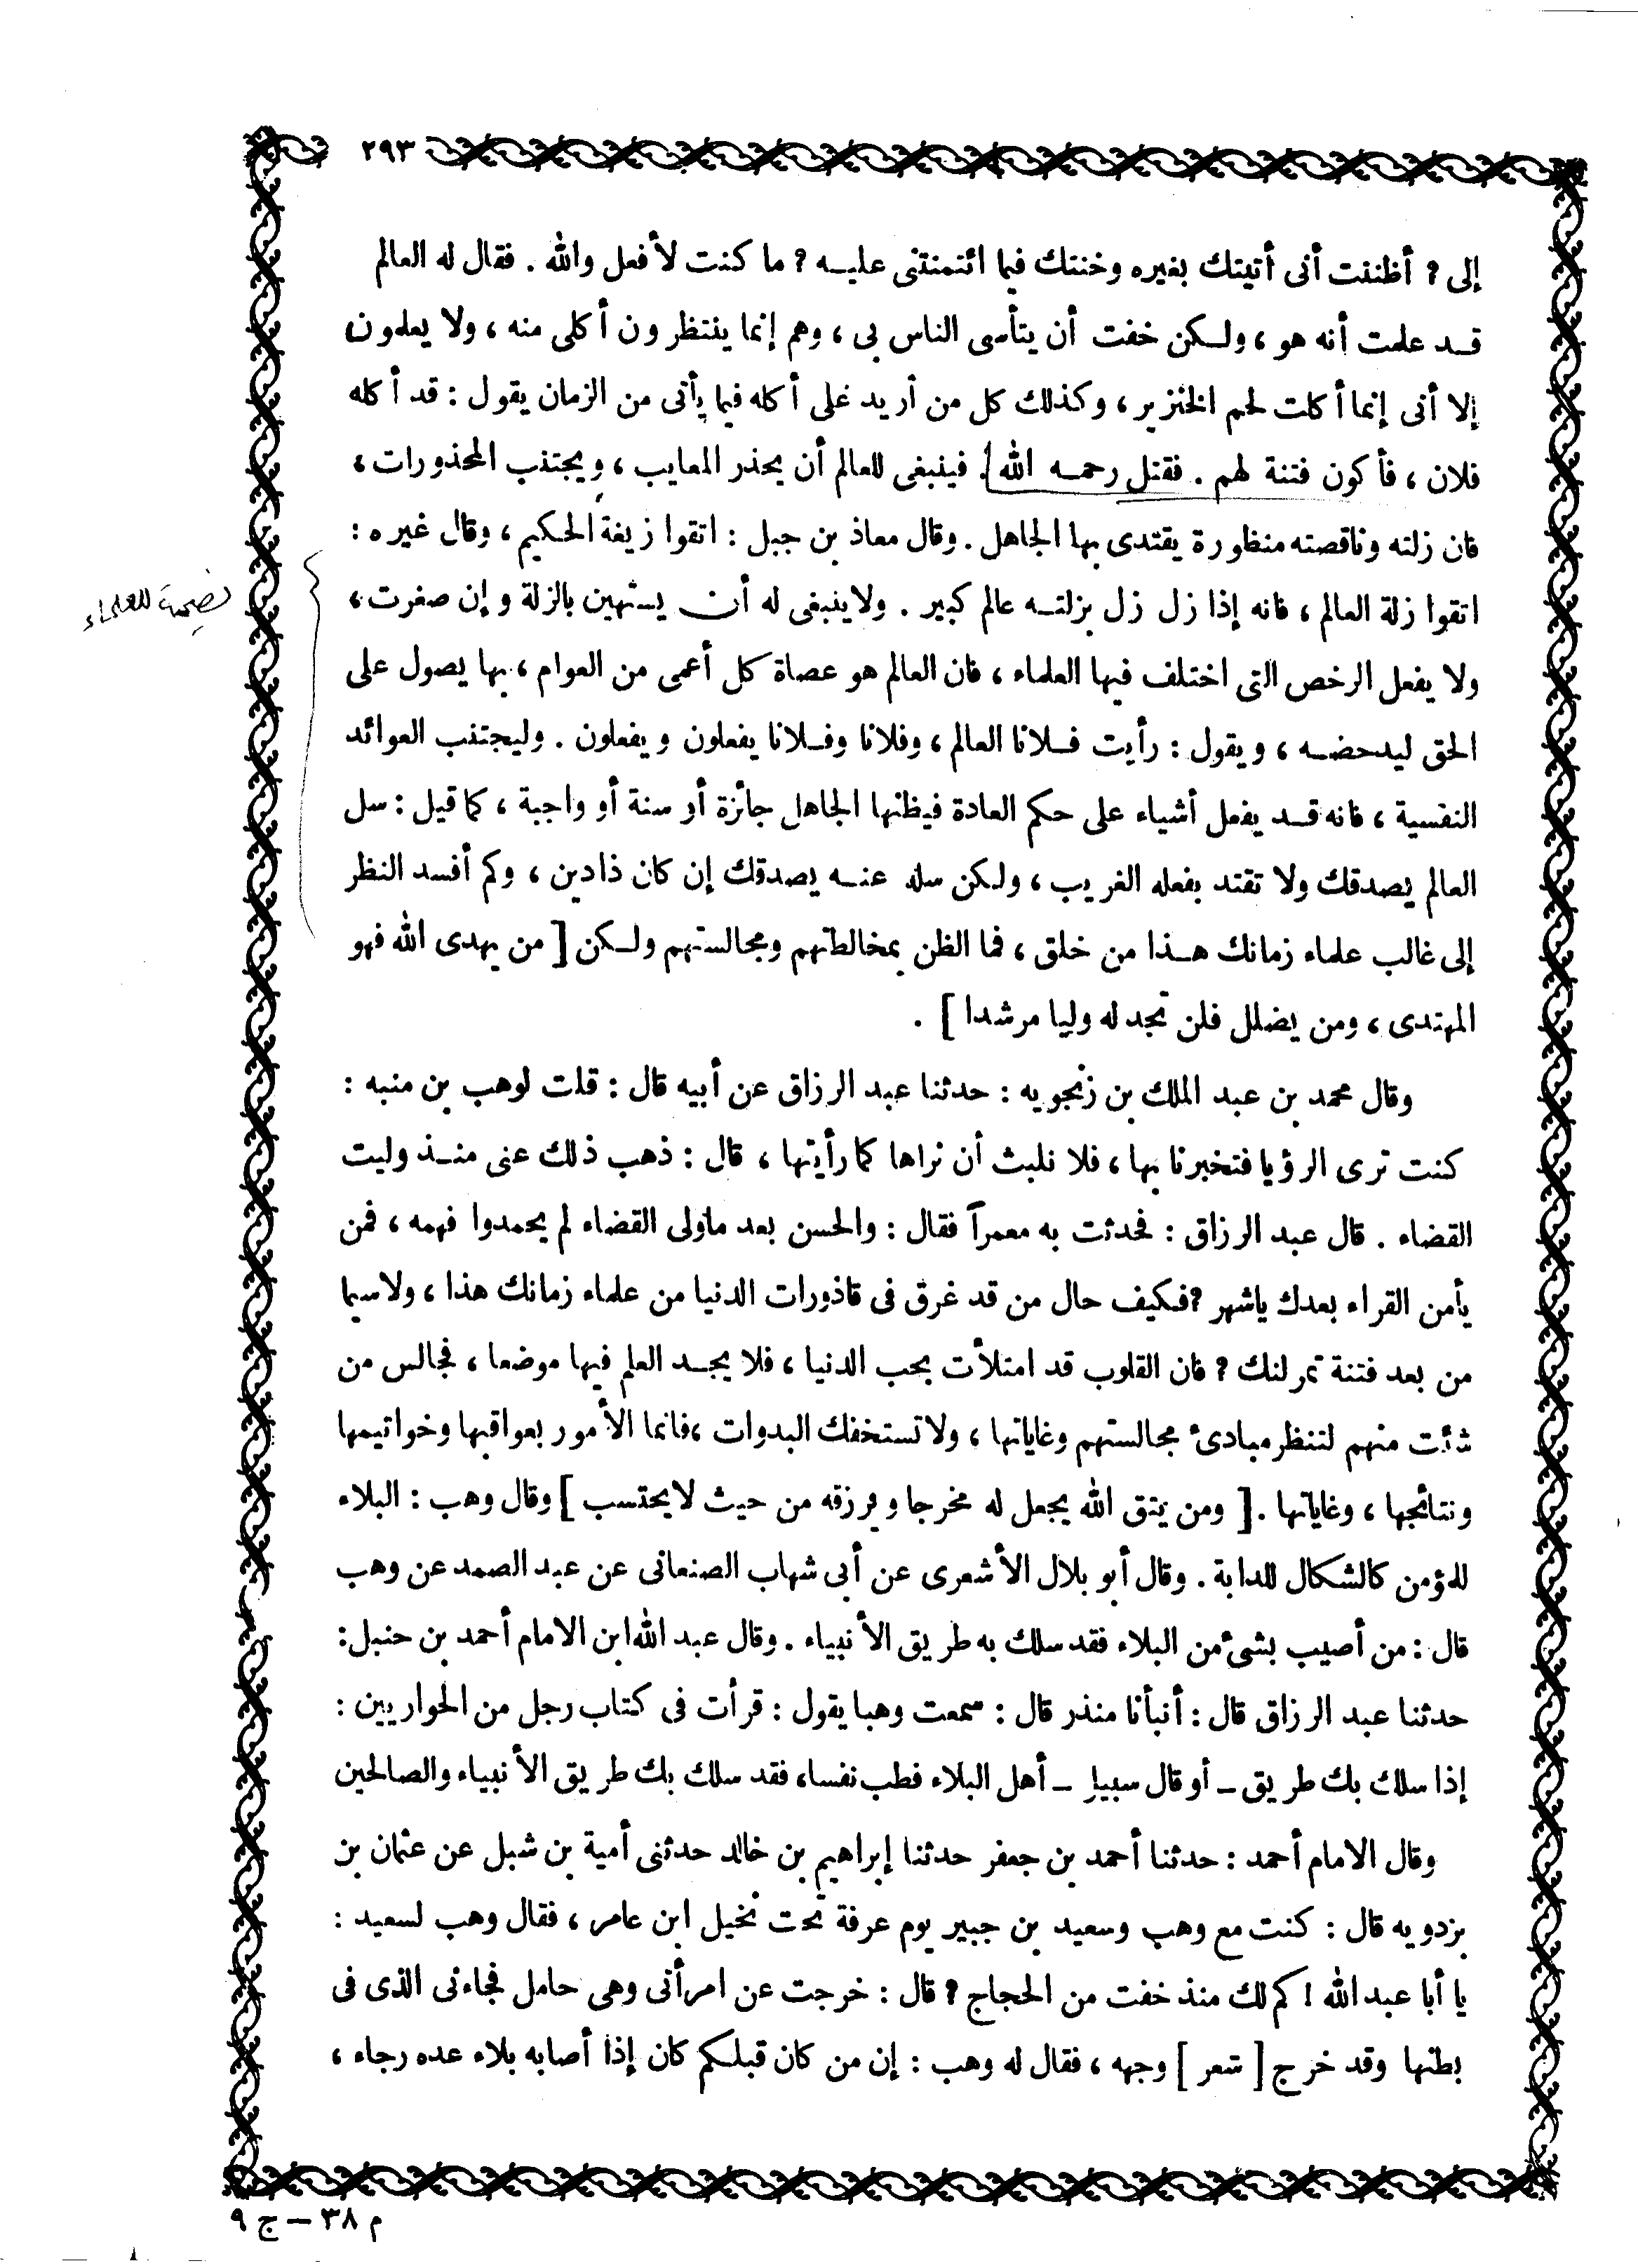 ٢٩٣
إلى ? أظننت أنى أتيتك بغيره وخنتك فيما ائتمنتنى عليــه ? ما كنت لأفعل والله . فقال له العالم
قــد علمت أنه هو ، ولــكن خفت أن يتأسى الناس بى ، وهم إنما ينتظرون أكلى منه ، ولا يعلمون
إلا أنى إنما أكلت لحم الخنزير ، وكذلك كل من أريد على أكله فيما يأتى من الزمان يقول : قد أكله
فلان ، فأكون فتنة لهم . فقتل رحمــه الله . فينبغى للعالم أن يحذر المعايب ، ويجتنب المحذورات ،
فان زلته وناقصته منظورة يقتدى بها الجاهل . وقال معاذ بن جبل : اتقوا زيغة الحكيم ، وقال غيره :
نصيحة للعلماء
اتقوا زلة العالم ، فانه إذا زل زل بزلتــه عالم كبير . ولا ينبغى له أن يستهين بالزلة وإن صغرت ،
ولا يفعل الرخص التى اختلف فيها العلماء ، فان العالم هو عصاة كل أعمى من العوام ، بها يصول على
الحق ليدحضــه ، ويقول : رأيت فــلانا العالم ، وفلانا وفــلانا يفعلون ويفعلون . وليجتنب العوائد
النفسية ، فانه قــد يفعل أشياء على حكم العادة فيظنها الجاهل جائزة أو سنة أو واجبة ، كما قيل : سل
العالم يصدقك ولا تقتد بفعله الغريب ، ولكن سله عنــه يصدقك إن كان ذا دين ، وكم أفسد النظر
إلى غالب علماء زمانك هــذا من خلق ، فما الظن بمخالطتهم ومجالستهم ولــكن [ من يهدى الله فهو
المهتدى ، ومن يضلل فلن تجد له وليا مرشدا ] .
وقال محمد بن عبد الملك بن زنجويه : حدثنا عبد الرزاق عن أبيه قال : قلت لوهب بن منبه :
كنت ترى الرؤيا فتخبرنا بها ، فلا نلبث أن نراها كما رأيتها ، قال : ذهب ذلك عنى منــذ وليت
القضاء . قال عبد الرزاق : فحدثت به معمراً فقال : والحسن بعد ماولى القضاء لم يحمدوا فهمه ، فمن
يأمن القراء بعدك ياشهر ? فكيف حال من قد غرق فى قاذورات الدنيا من علماء زمانك هذا ، ولا سيما
من بعد فتنة تمرلنك ? فان القلوب قد امتلأت بحب الدنيا ، فلا يجــد العلم فيها موضعا ، فجالس من
شئت منهم لتنظر مبادئ مجالستهم وغاياتها ، ولا تستخفك البدوات ، فانما الأمور بعواقبها وخواتيمها
ونتائجها ، وغاياتها . [ ومن يتق الله يجعل له مخرجا ويرزقه من حيث لا يحتسب ] وقال وهب : البلاء
للمؤمن كالشكال للدابة . وقال أبو بلال الأشعرى عن أبى شهاب الصنعانى عن عبد الصمد عن وهب
قال : من أصيب بشئ من البلاء فقد سلك به طريق الأنبياء . وقال عبد الله ابن الامام أحمد بن حنبل :
حدثنا عبد الرزاق قال : أنبأنا منذر قال : سمعت وهبا يقول : قرأت فى كتاب رجل من الحواريين :
إذا سلك بك طريق ــ أو قال سبيل ــ أهل البلاء فطب نفسا، فقد سلك بك طريق الأنبياء والصالحين
وقال الامام أحمد : حدثنا أحمد بن جعفر حدثنا إبراهيم بن خالد حدثنى أمية بن شبل عن عثمان بن
بزدويه قال : كنت مع وهب وسعيد بن جبير يوم عرفة تحت نخيل ابن عامر ، فقال وهب لسعيد :
يا أبا عبد الله ! كم لك منذ خفت من الحجاج ? قال : خرجت عن امرأتى وهى حامل فجاءنى الذى فى
بطنها وقد خرج [ شعر ] وجهه ، فقال له وهب : إن من كان قبلكم كان إذا أصابه بلاء عده رجاء ،
م ٣٨ – ج ٩